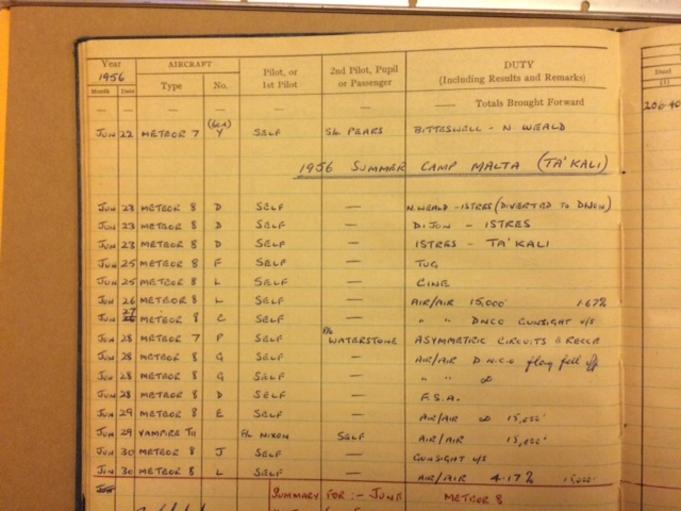 Year AIRCRAFT Pilot, or 2nd Pilot, Pupil DUTY
1956 1st Pilot or Passenger (Including Results and Remarks)
Month Date Type No.
— — — — — — —— Totals Brought Forward
JUN 22 METEOR 7 (604) Y SELF S/L PEARS BITTESWELL - N WEALD
206.40
1956 SUMMER CAMP MALTA (TA'KALI)
JUN 23 METEOR 8 D SELF — N.WEALD - ISTRES (DIVERTED TO DIJON)
JUN 23 METEOR 8 D SELF — DIJON - ISTRES
JUN 23 METEOR 8 D SELF — ISTRES - TA'KALI
JUN 25 METEOR 8 F SELF — TUG
JUN 25 METEOR 8 L SELF — CINE
JUN 26 METEOR 8 L SELF — AIR/AIR 15,000' 1.67%
JUN 27 METEOR 8 C SELF — " " DNCO GUNSIGHT U/S
JUN 28 METEOR 7 P SELF WATERSTONE ASYMMETRIC CIRCUITS & RECCE
JUN 28 METEOR 8 G SELF — AIR/AIR D.N.C.O flag fell off
JUN 28 METEOR 8 G SELF — " "
JUN 28 METEOR 8 D SELF — F.S.A.
JUN 29 METEOR 8 E SELF — AIR/AIR 15,000'
JUN 29 VAMPIRE T11 F/L NIXON SELF AIR/AIR 15,000'
JUN 30 METEOR 8 J SELF — GUNSIGHT U/S
JUN 30 METEOR 8 L SELF — AIR/AIR 4.17% 15,000'
JUN SUMMARY FOR :- JUNE METEOR 8